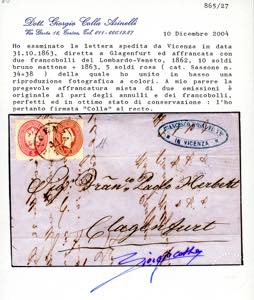 865/27
Dott. Giorgio Colla Asinelli
10 Dicembre 2004
Ho esaminato la lettera spedita da Vicenza in data
31.10.1863, diretta a Glagenfurt ed affrancata con
due francobolli del Lombardo-Veneto, 1862, 10 soldi
bruno mattone + 1863, 5 soldi rosa ( cat. Sassone n.
34+38 ) della quale ho unito in basso una
riproduzione fotografica a colori. A mio parere la
pregevole affrancatura mista di due emissioni è
originale al pari degli annulli e dei francobolli,
perfetti ed in ottimo stato di conservazione : l'ho
pertanto firmata "Colla" al recto.
IN VICENZA
Paolo Herbett
Clagenfurt